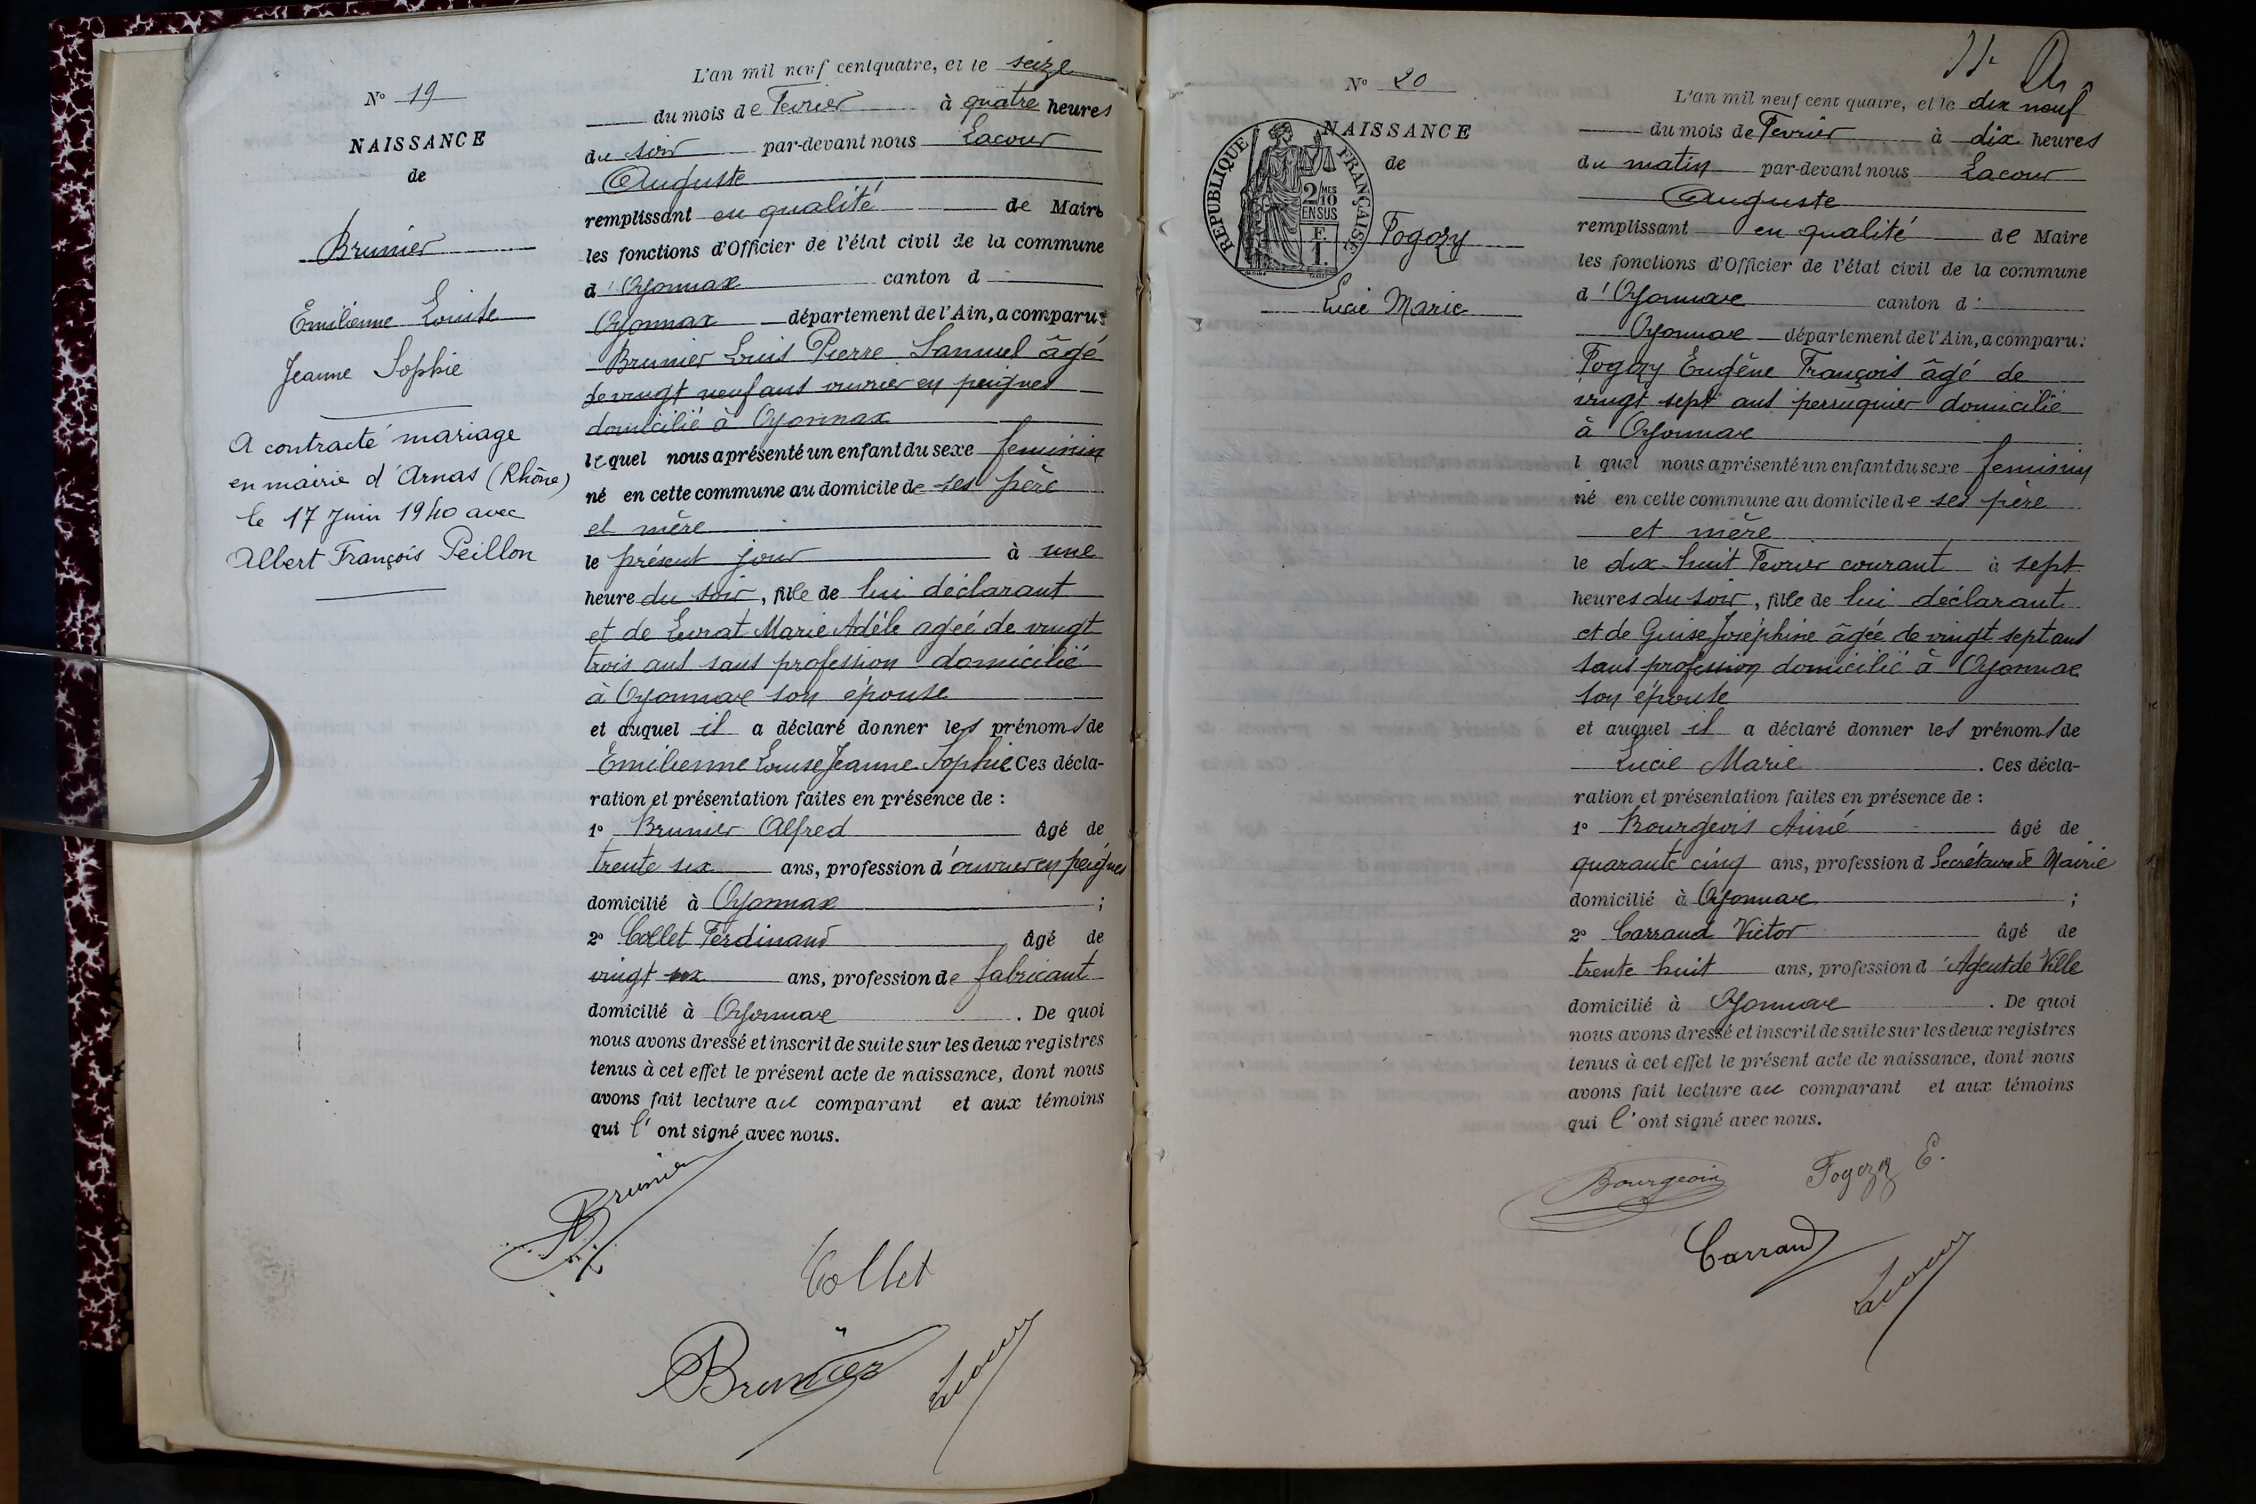 N° 19
NAISSANCE
de
Brunier
Emilienne Louise
Jeanne Sophie
A contracté mariage
en mairie d'Arnas (Rhône)
le 17 Juin 1940 avec
Albert François Peillon
L'an mil neuf cent quatre, et le seize
du mois de Fevrier à quatre heures
du soir par-devant nous Lacour
Auguste
remplissant en qualité de Maire
les fonctions d'Officier de l'état civil de la commune
d'Oyonnax canton d
Oyonnax département de l'Ain, a comparu:
Brunier Louis Pierre Samuel âgé
de vingt neuf ans ouvrier en peignes
domicilié à Oyonnax
lequel nous a présenté un enfant du sexe feminin
né en cette commune au domicile de ses père
et mère
le présent jour à une
heure du soir, fille de lui déclarant
et de Levrat Marie Adèle agée de vingt
trois ans sans profession domicilié
à Oyonnax son épouse
et auquel il a déclaré donner les prénoms de
Emilienne Louise Jeanne Sophie Ces décla-
ration et présentation faites en présence de :
1° Brunier Alfred âgé de
trente six ans, profession d'ouvrier en peignes
domicilié à Oyonnax ;
2° Collet Ferdinand âgé de
vingt six ans, profession de fabricant
domicilié à Oyonnax . De quoi
nous avons dressé et inscrit de suite sur les deux registres
tenus à cet effet le présent acte de naissance, dont nous
avons fait lecture au comparant et aux témoins
qui l'ont signé avec nous.
Brunier
Collet
Brunier
Lacour
N° 20
NAISSANCE
de
REPUBLIQUE FRANÇAISE
2/10 MES
EN SUS
Fogozy
Lucie Marie
L'an mil neuf cent quatre, et le dix neuf
du mois de Fevrier à dix heures
du matin par-devant nous Lacour
Auguste
remplissant en qualité de Maire
les fonctions d'Officier de l'état civil de la commune
d'Oyonnax canton d:
Oyonnax département de l'Ain, a comparu:
Fogozy Eugène François âgé de
vingt sept ans perruquier domicilié
à Oyonnax
l quel nous a présenté un enfant du sexe feminin
né en cette commune au domicile de ses père
et mère
le dix-huit Fevrier courant à sept
heures du soir, fille de lui déclarant
et de Guise Joséphine âgée de vingt sept ans
sans profession domicilié à Oyonnax
son épouse
et auquel il a déclaré donner les prénoms de
Lucie Marie . Ces décla-
ration et présentation faites en présence de :
1° Bourgeois Aimé âgé de
quarante cinq ans, profession d Secrétaire de Mairie
domicilié à Oyonnax ;
2° Carraud Victor âgé de
trente huit ans, profession d'Agent de Ville
domicilié à Oyonnax . De quoi
nous avons dressé et inscrit de suite sur les deux registres
tenus à cet effet le présent acte de naissance, dont nous
avons fait lecture au comparant et aux témoins
qui l'ont signé avec nous.
Bourgeois Fogozy E.
Carraud
Lacour